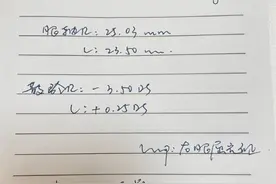 眼轴R: 25.03 mm
L: 23.50 m.
验光R: -3.50DS
L: +0.25DS
Imp: 右眼屈光不正